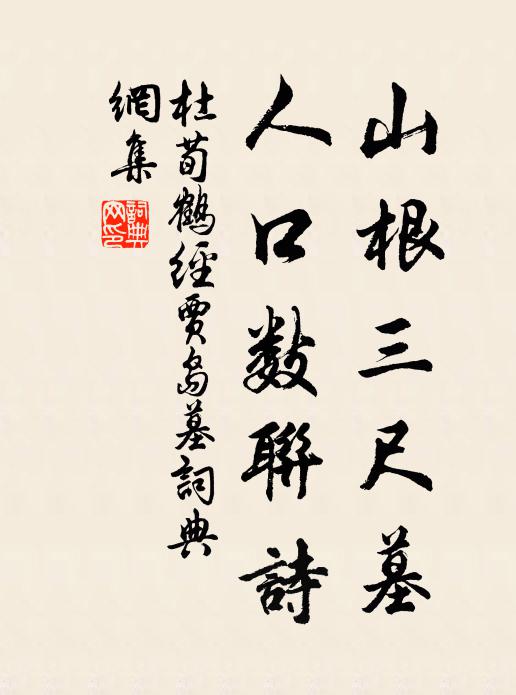 山根三尺墓
人口數聯詩
杜荀鶴經賈島墓詞典
網集
詞典
网印